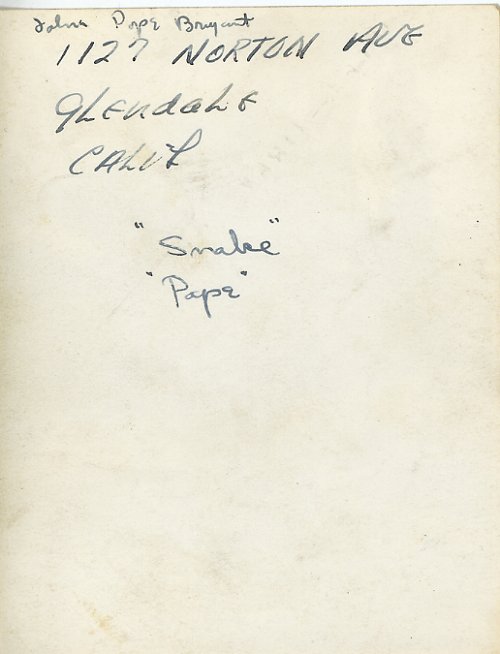 John Pope Bryant
1127 NORTON AVE
GLENDALE
CALIF
"Snake"
"Pope"